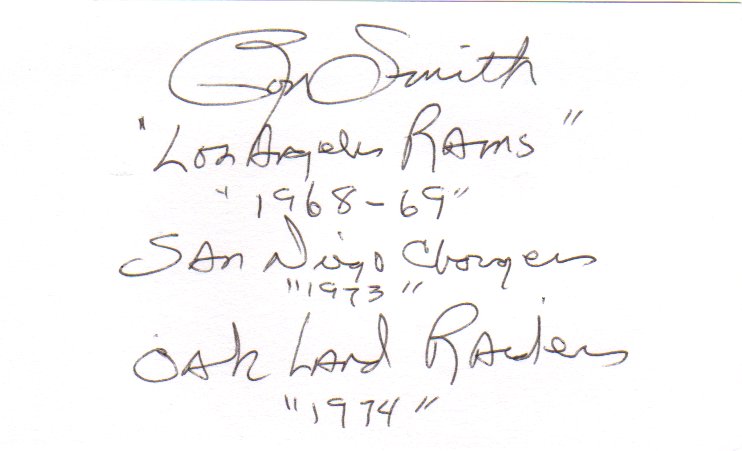 Ron Smith
"Los Angeles Rams"
"1968-69"
SAn Diego Chargers
"1973"
OAk LAnd RAiders
"1974"